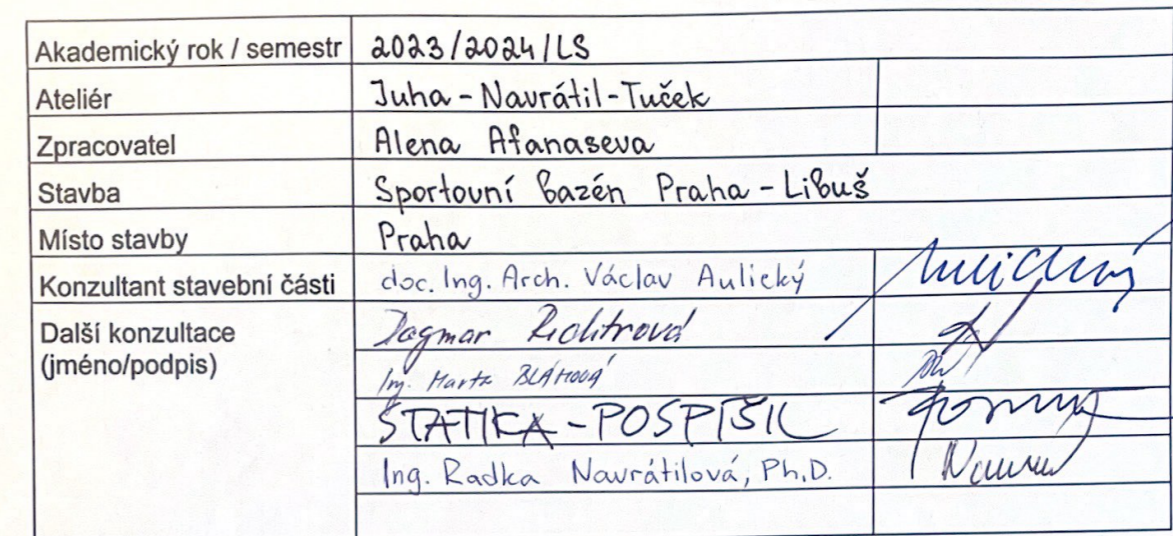 Akademický rok / semestr 2023/2024/LS
Ateliér Juha-Navrátil-Tuček
Zpracovatel Alena Afanaseva
Stavba Sportovní bazén Praha-Libuš
Místo stavby Praha
Konzultant stavební části doc. Ing. Arch. Václav Aulický
Další konzultace Dagmar
(jméno/podpis) Ing. Marta BLÁHOVÁ
STATIKA-POSPÍŠIL
Ing. Radka Navrátilová, Ph.D.